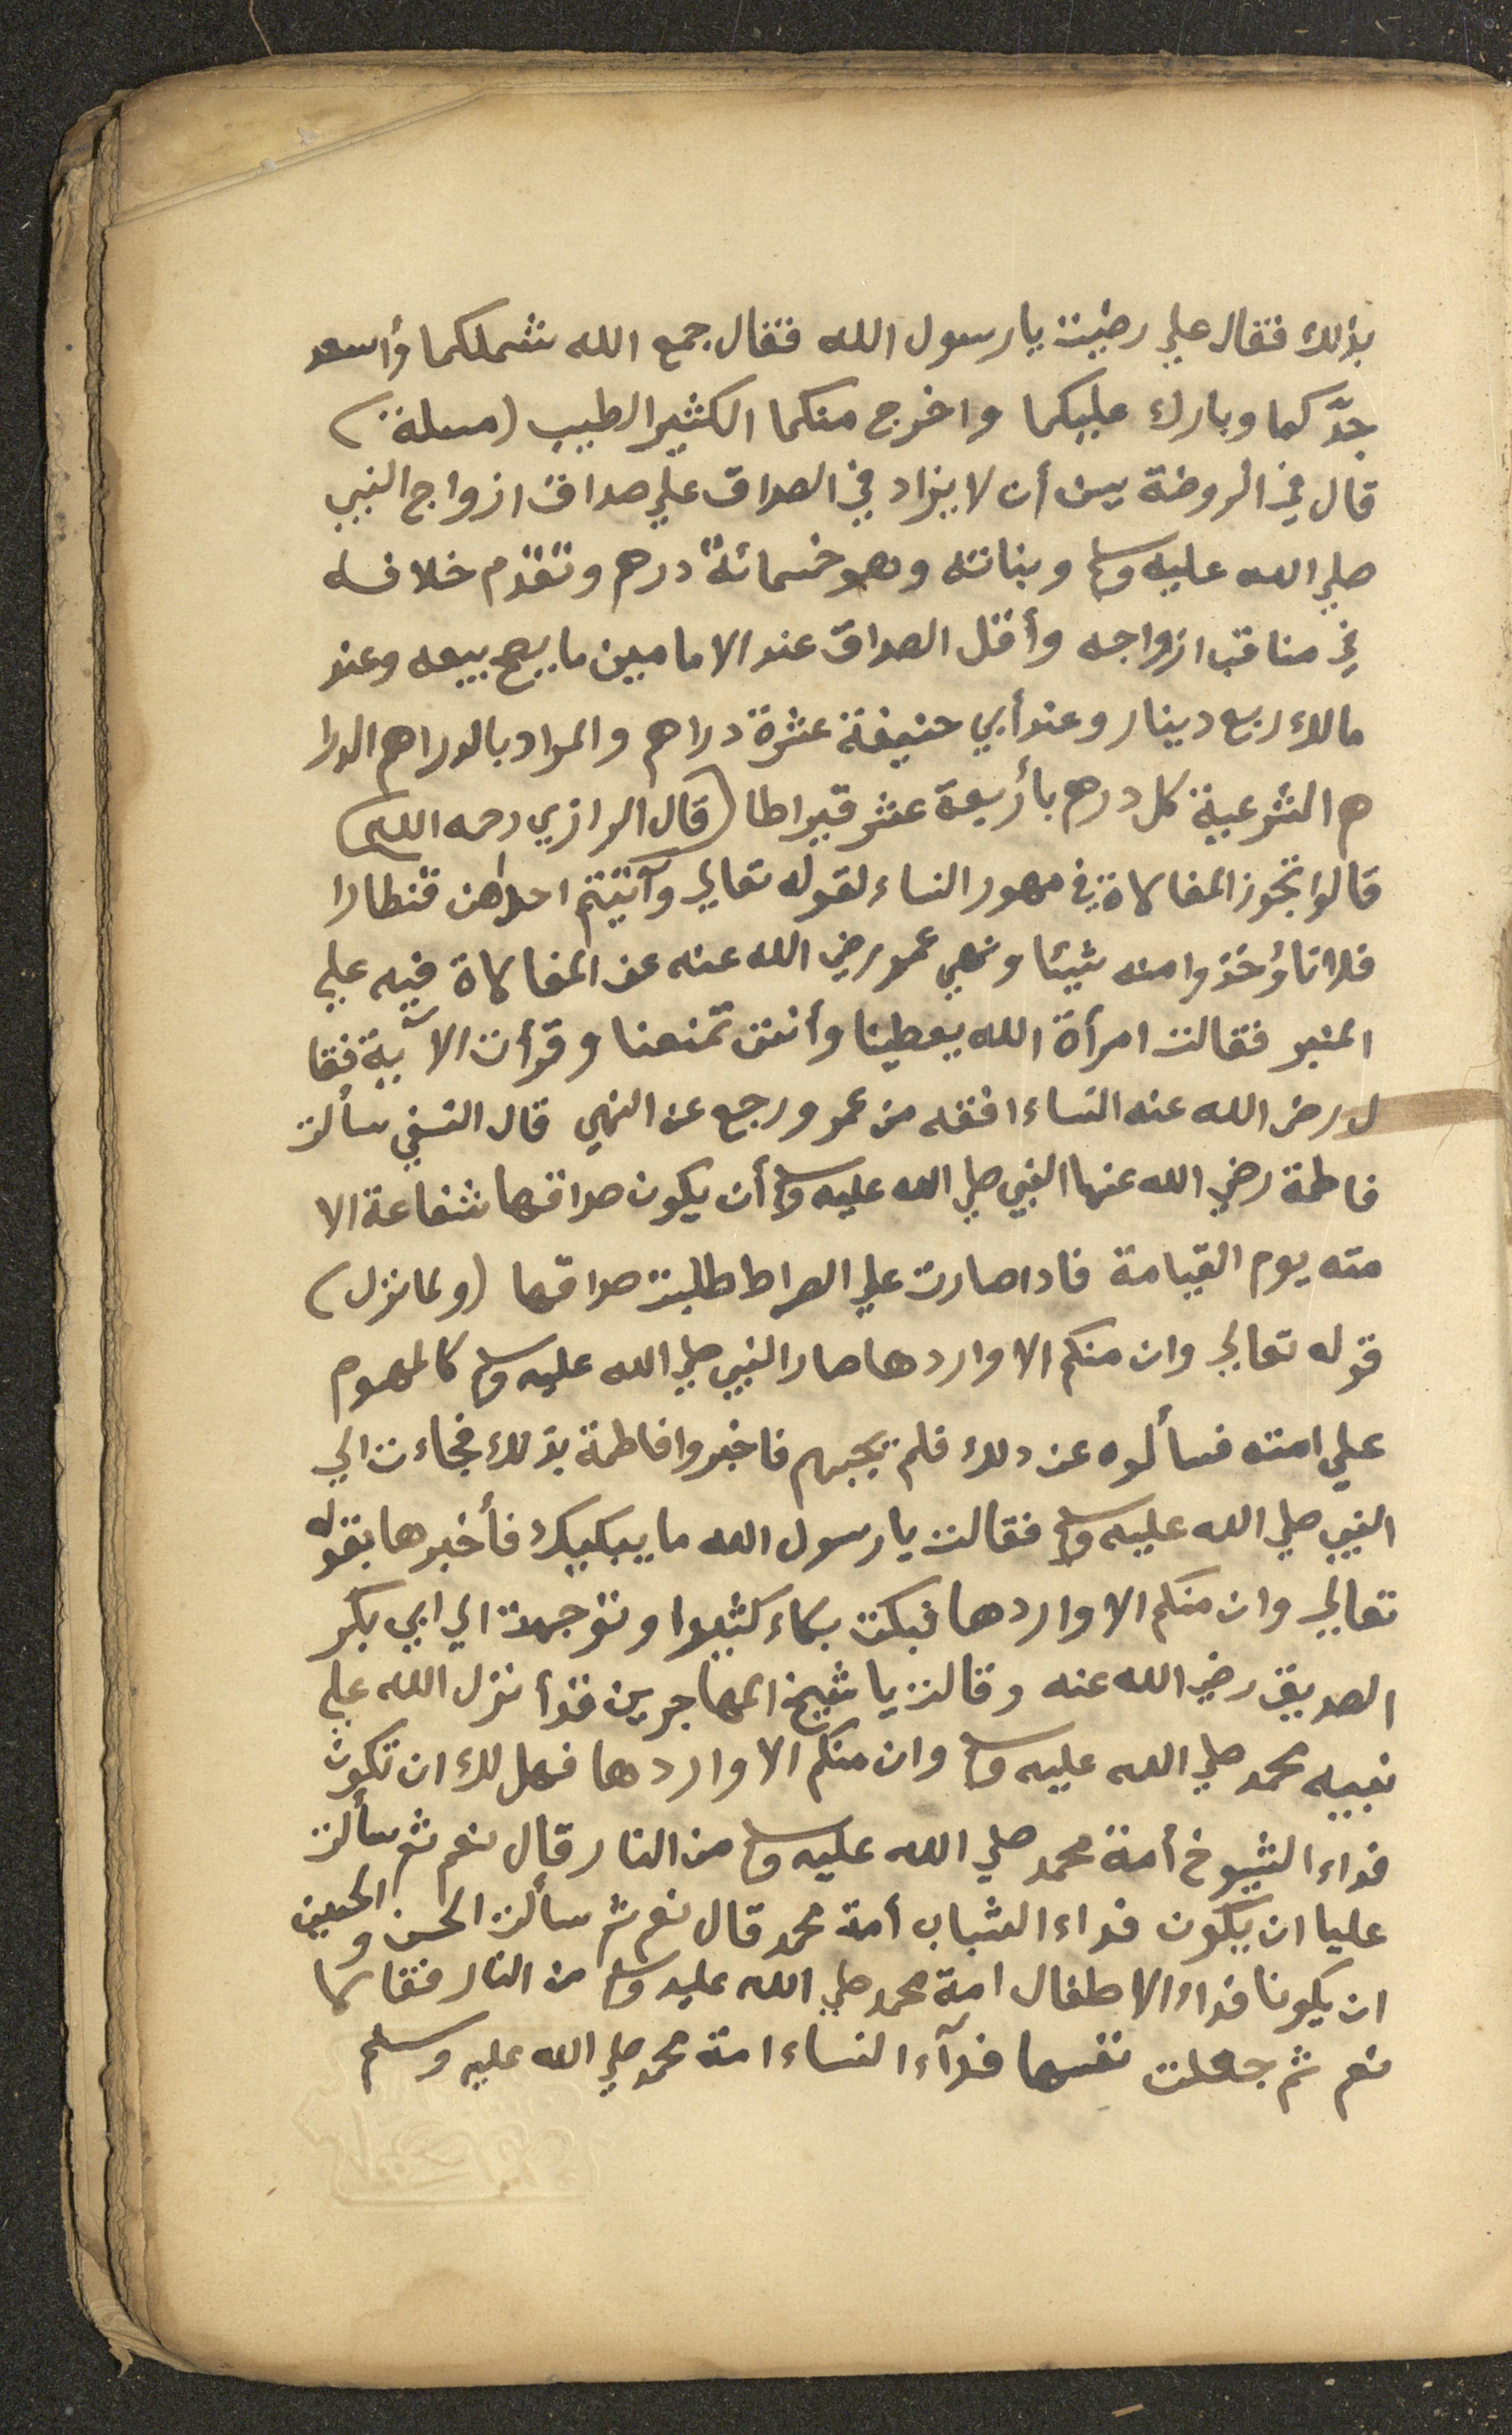 بذلك فقال علي رضيت يا رسول الله فقال جمع الله شملكما وأسعد
جدّكما وبارك عليكما واخرج منكما الكثير الطيب (مسلة)
قال في الروضة يسن أن لا يزاد في الصداق علي صداق ازواج النبي
صلي الله عليه وسلم وبناته وهو خمسمائة درهم وتقدّم خلافه
في مناقب ازواجه وأقل الصداق عند الامامين ما يصح بيعه وعند
مالك ربع دينار وعند أبي حنيفة عشرة دراهم والمراد بالدراهم الدرا
هم الشرعية كل درهم بأربعة عشر قيراطا (قال الرازي رحمه الله)
قالوا تجوز المغالاة في مهور النساء لقوله تعالي وآتيتم احداهن قنطارا
فلا تاؤخذوا منه شيئا ونهي عمر رضي الله عنه عن المغالاة فيه علي
المنبر فقالت امرأة الله يعطينا وأنت تمنعنا وقرأت الآية فقا
ل رضي الله عنه النساء افقه من عمر ورجع عن النهي قال النسفي سألت
فاطمة رضي الله عنها النبي صلي الله عليه وسلم أن يكون صداقها شفاعة الا
مته يوم القيامة فاذا صارت علي الصراط طلبت صداقها (ولما نزل)
قوله تعالي وان منكم الا واردها صار النبي صلي الله عليه وسلم كالمهموم
علي امته فسألوه عن ذلك فلم يجبهم فاخبروا فاطمة بذلك فجاءت الي
النبي صلي الله عليه وسلم فقالت يا رسول الله ما يبكيك فأخبرها بقوله
تعالي وان منكم الا واردها فبكت بكاء كثيرا وتوجهت الي ابي بكر
الصديق رضي الله عنه وقالت يا شيخ المهاجرين قد أنزل الله علي
نبيه محمد صلي الله عليه وسلم وان منكم الا واردها فهل لك ان تكون
فداء الشيوخ أمة محمد صلي الله عليه وسلم من النار قال نعم ثم سألت
عليا ان يكون فداء الشباب أمة محمد قال نعم ثم سألت الحسن والحسين
ان يكونا فداء الاطفال امة محمد صلي الله عليه وسلم من النار فقالا
نعم ثم جعلت نفسها فدآء النساء امة محمد صلي الله عليه وسلم